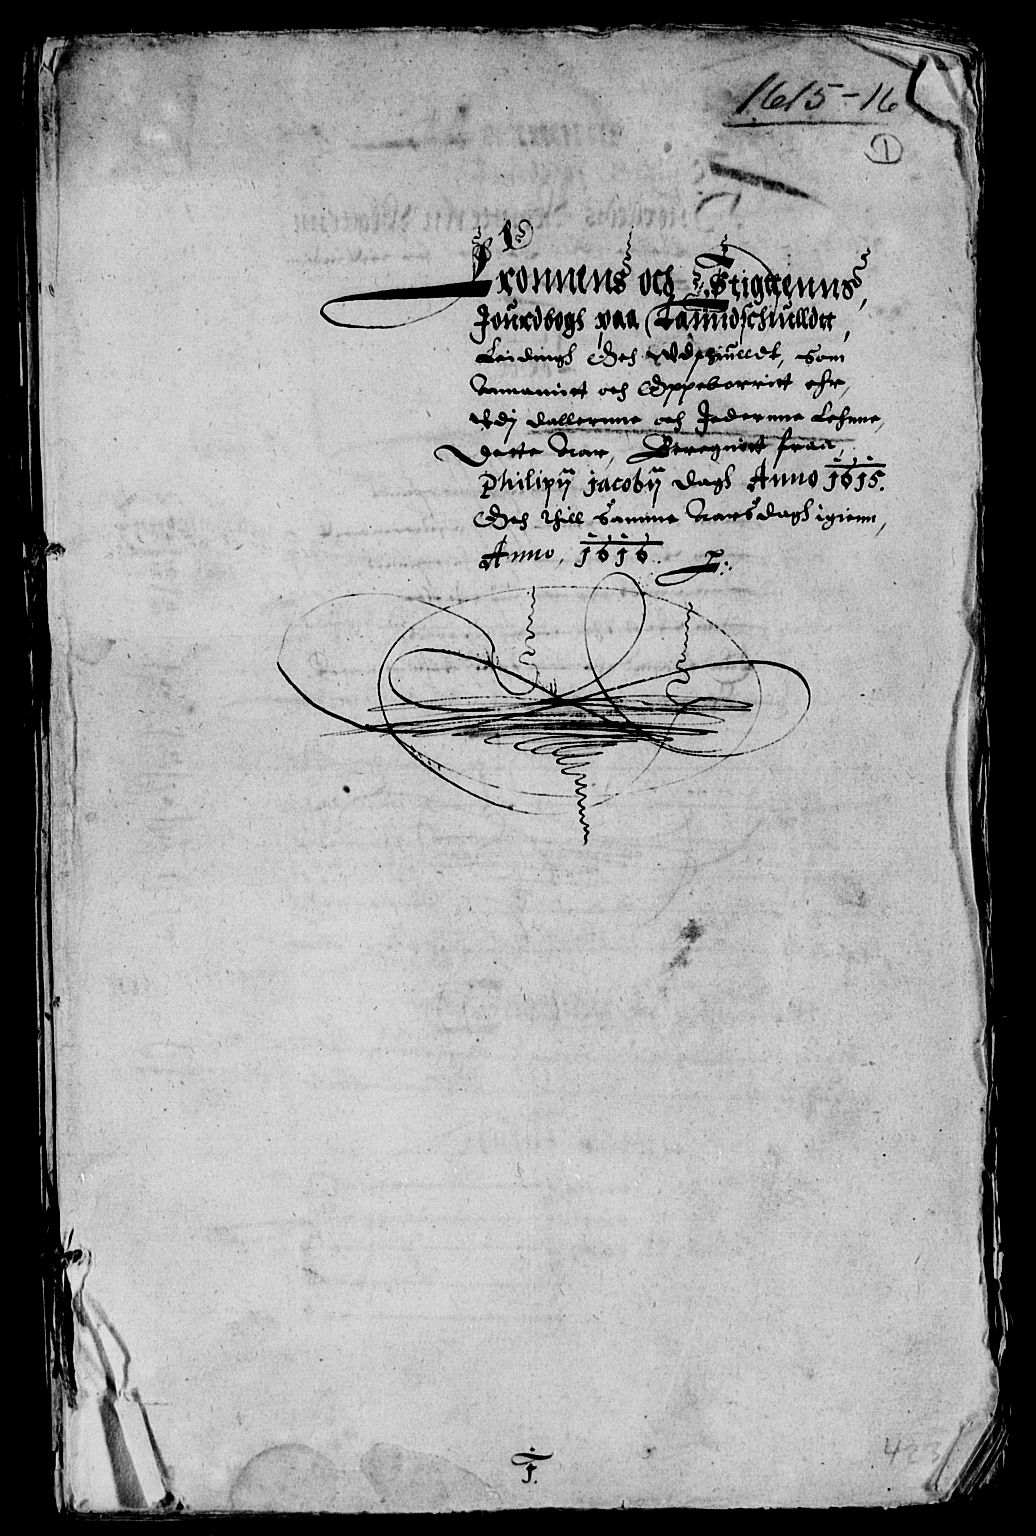 1615-16
1
Kronnens och Stigttenns,
Jourdbogh paa Lanndschulldtt,
Leidingh Och Wdschuelet, som
Annammett och Oppeborritt ehr,
Vdj Dallernne och Jedernne Lehnne,
Dette Aar, Beregnitt fraa,
Philipij Jacobij dagh Anno 1615.
Och thill Samme Aars dagh igienn,
Anno, 1616
1.
423